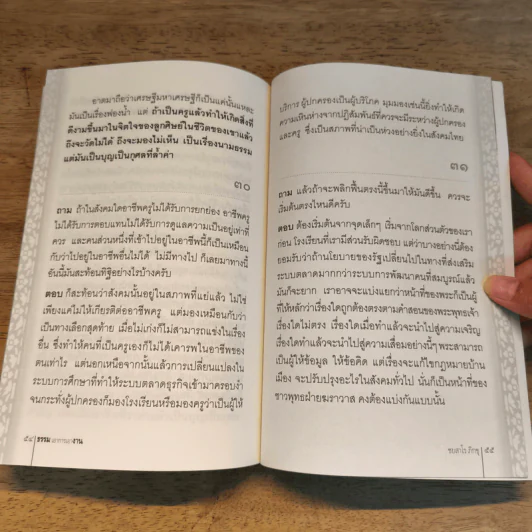 อาตมาถือว่าเศรษฐีมหาเศรษฐีก็เป็นแค่นั้นแหละ
มันเป็นเรื่องฟองน้ำ แต่ ถ้าเป็นครูแล้วทำให้เกิดสิ่งที่
ดีงามขึ้นมาในจิตใจของลูกศิษย์ในชีวิตของเขาแล้ว
ถึงจะวัดไม่ได้ ถึงจะมองไม่เห็น เป็นเรื่องนามธรรม
แต่มันเป็นบุญเป็นกุศลที่ล้ำค่า
๓๐
ถาม ถ้าในสังคมใดอาชีพครูไม่ได้รับการยกย่อง อาชีพครู
ไม่ได้รับการตอบแทนไม่ได้รับการดูแลความเป็นอยู่เท่าที่
ควร และคนส่วนหนึ่งที่เข้าไปอยู่ในอาชีพนี้ก็เป็นเหมือน
กับว่าไปอยู่ในอาชีพอื่นไม่ได้ ไม่มีทางไป ก็เลยมาทางนี้
อันนี้มันสะท้อนทิฐิอย่างไรบ้างครับ
ตอบ ก็สะท้อนว่าสังคมนั้นอยู่ในสภาพที่แย่แล้ว ไม่ใช่
เพียงแค่ไม่ให้เกียรติต่ออาชีพครู แต่มองเหมือนกับว่า
เป็นทางเลือกสุดท้าย เมื่อไม่เก่งก็ไม่สามารถแข่งในเรื่อง
อื่น ซึ่งทำให้คนที่เป็นครูเองก็ไม่ได้เคารพในอาชีพของ
ตนเท่าไร แต่นอกเหนือจากนั้นแล้วการเปลี่ยนแปลงใน
ระบบการศึกษาที่ทำให้ระบบตลาดธุรกิจเข้ามาครอบงำ
จนกระทั่งผู้ปกครองก็มองโรงเรียนหรือมองครูว่าเป็นผู้ให้
๕๔ ธรรม งาน
บริการ ผู้ปกครองเป็นผู้บริโภค มุมมองเช่นนี้ยิ่งทำให้เกิด
ความเหินห่างจากปฏิสัมพันธ์ที่ควรจะมีระหว่างผู้ปกครอง
และครู ซึ่งเป็นสภาพที่น่าเป็นห่วงอย่างยิ่งในสังคมไทย
๓๑
ถาม แล้วถ้าจะพลิกฟื้นตรงนี้ขึ้นมาให้มันดีขึ้น ควรจะ
เริ่มต้นตรงไหนดีครับ
ตอบ ต้องเริ่มต้นจากจุดเล็กๆ เริ่มจากโลกส่วนตัวของเรา
ก่อน โรงเรียนที่เรามีส่วนรับผิดชอบ แต่ว่าบางอย่างนี้ต้อง
ยอมรับว่าถ้านโยบายของรัฐเปลี่ยนไปในทางที่ส่งเสริม
ระบบตลาดมากกว่าระบบการพัฒนาคนที่สมบูรณ์แล้ว
มันก็จะยาก เราอาจจะแบ่งแยกว่าหน้าที่ของพระก็เป็นผู้
ที่ให้หลักว่าเรื่องใดถูกต้องตรงตามคำสอนของพระพุทธเจ้า
เรื่องใดไม่ตรง เรื่องใดเมื่อทำแล้วจะนำไปสู่ความเจริญ
เรื่องใดทำแล้วจะนำไปสู่ความเสื่อมอย่างนี้ๆ พระสามารถ
เป็นผู้ให้ข้อมูล ให้ข้อคิด แต่เรื่องจะแก้ไขกฎหมายบ้าน
เมือง จะปรับปรุงอะไรในสังคมทั่วไป นั่นก็เป็นหน้าที่ของ
ชาวพุทธฝ่ายฆราวาส คงต้องแบ่งกันแบบนั้น
ชยสาโร ภิกขุ ๕๕